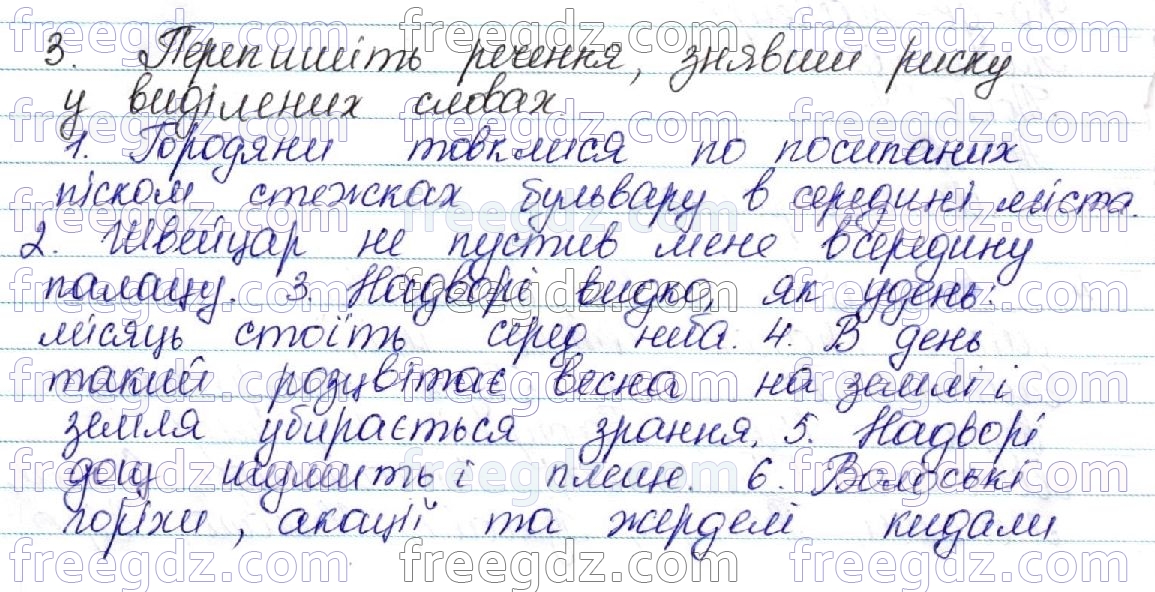 3. Перепишіть речення, знявши риску
у виділених словах.
1. Городяни товклися по посипаних
піском стежках бульвару в середині міста.
2. Швейцар не пустив мене всередину
палацу. 3. Надворі видко, як удень:
місяць стоїть серед неба. 4. В день
такий розцвітає весна на землі і
земля убирається зрання. 5. Надворі
дощ шумить і плеще. 6. Волоські
горіхи, акації та жерделі кидали
freegdz.com freegdz.com freegdz.com